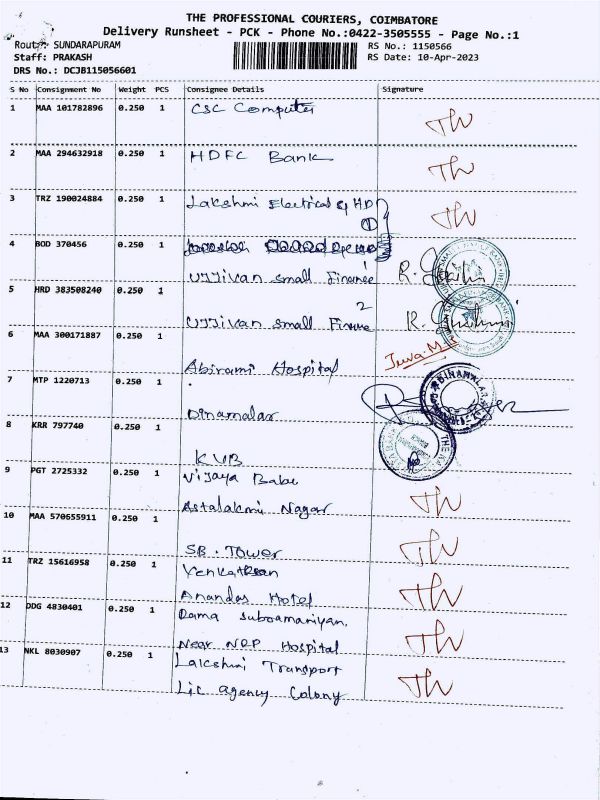 THE PROFESSIONAL COURIERS, COIMBATORE
Delivery Runsheet - PCK - Phone No.:0422-3505555 - Page No.:1
Route: SUNDARAPURAM RS No.: 1150566
Staff: PRAKASH RS Date: 10-Apr-2023
DRS No.: DCJB115056601
S No Consignment No Weight PCS Consignee Details Signature
1 MAA 101782896 0.250 1 CSC Computer
TW
2 MAA 294632918 0.250 1 HDFC Bank
TW
3 TRZ 190024884 0.250 1 Lakshmi Electrical & HD
① TW
4 BOD 370456 0.250 1
UJJivan small Finance R.
5 HRD 383508240 0.250 1
2
UJJivan small Finance R.
6 MAA 300171887 0.250 1
Abirami Hospital
7 MTP 1220713 0.250 1
Dinamalar DINAMALAR
8 KRR 797740 0.250 1
KVB
9 PGT 2725332 0.250 1 Vijaya Babu
Astalakmi Nagar TW
10 MAA 570655911 0.250 1
SB. Tower TW
11 TRZ 15616958 0.250 1 Venkatesan
Anandas Hotel TW
12 DDG 4830401 0.250 1 Rama subramaniyan.
Near NRP Hospital TW
13 NKL 8030907 0.250 1 Lakshmi Transport
Lic agency Colony TW